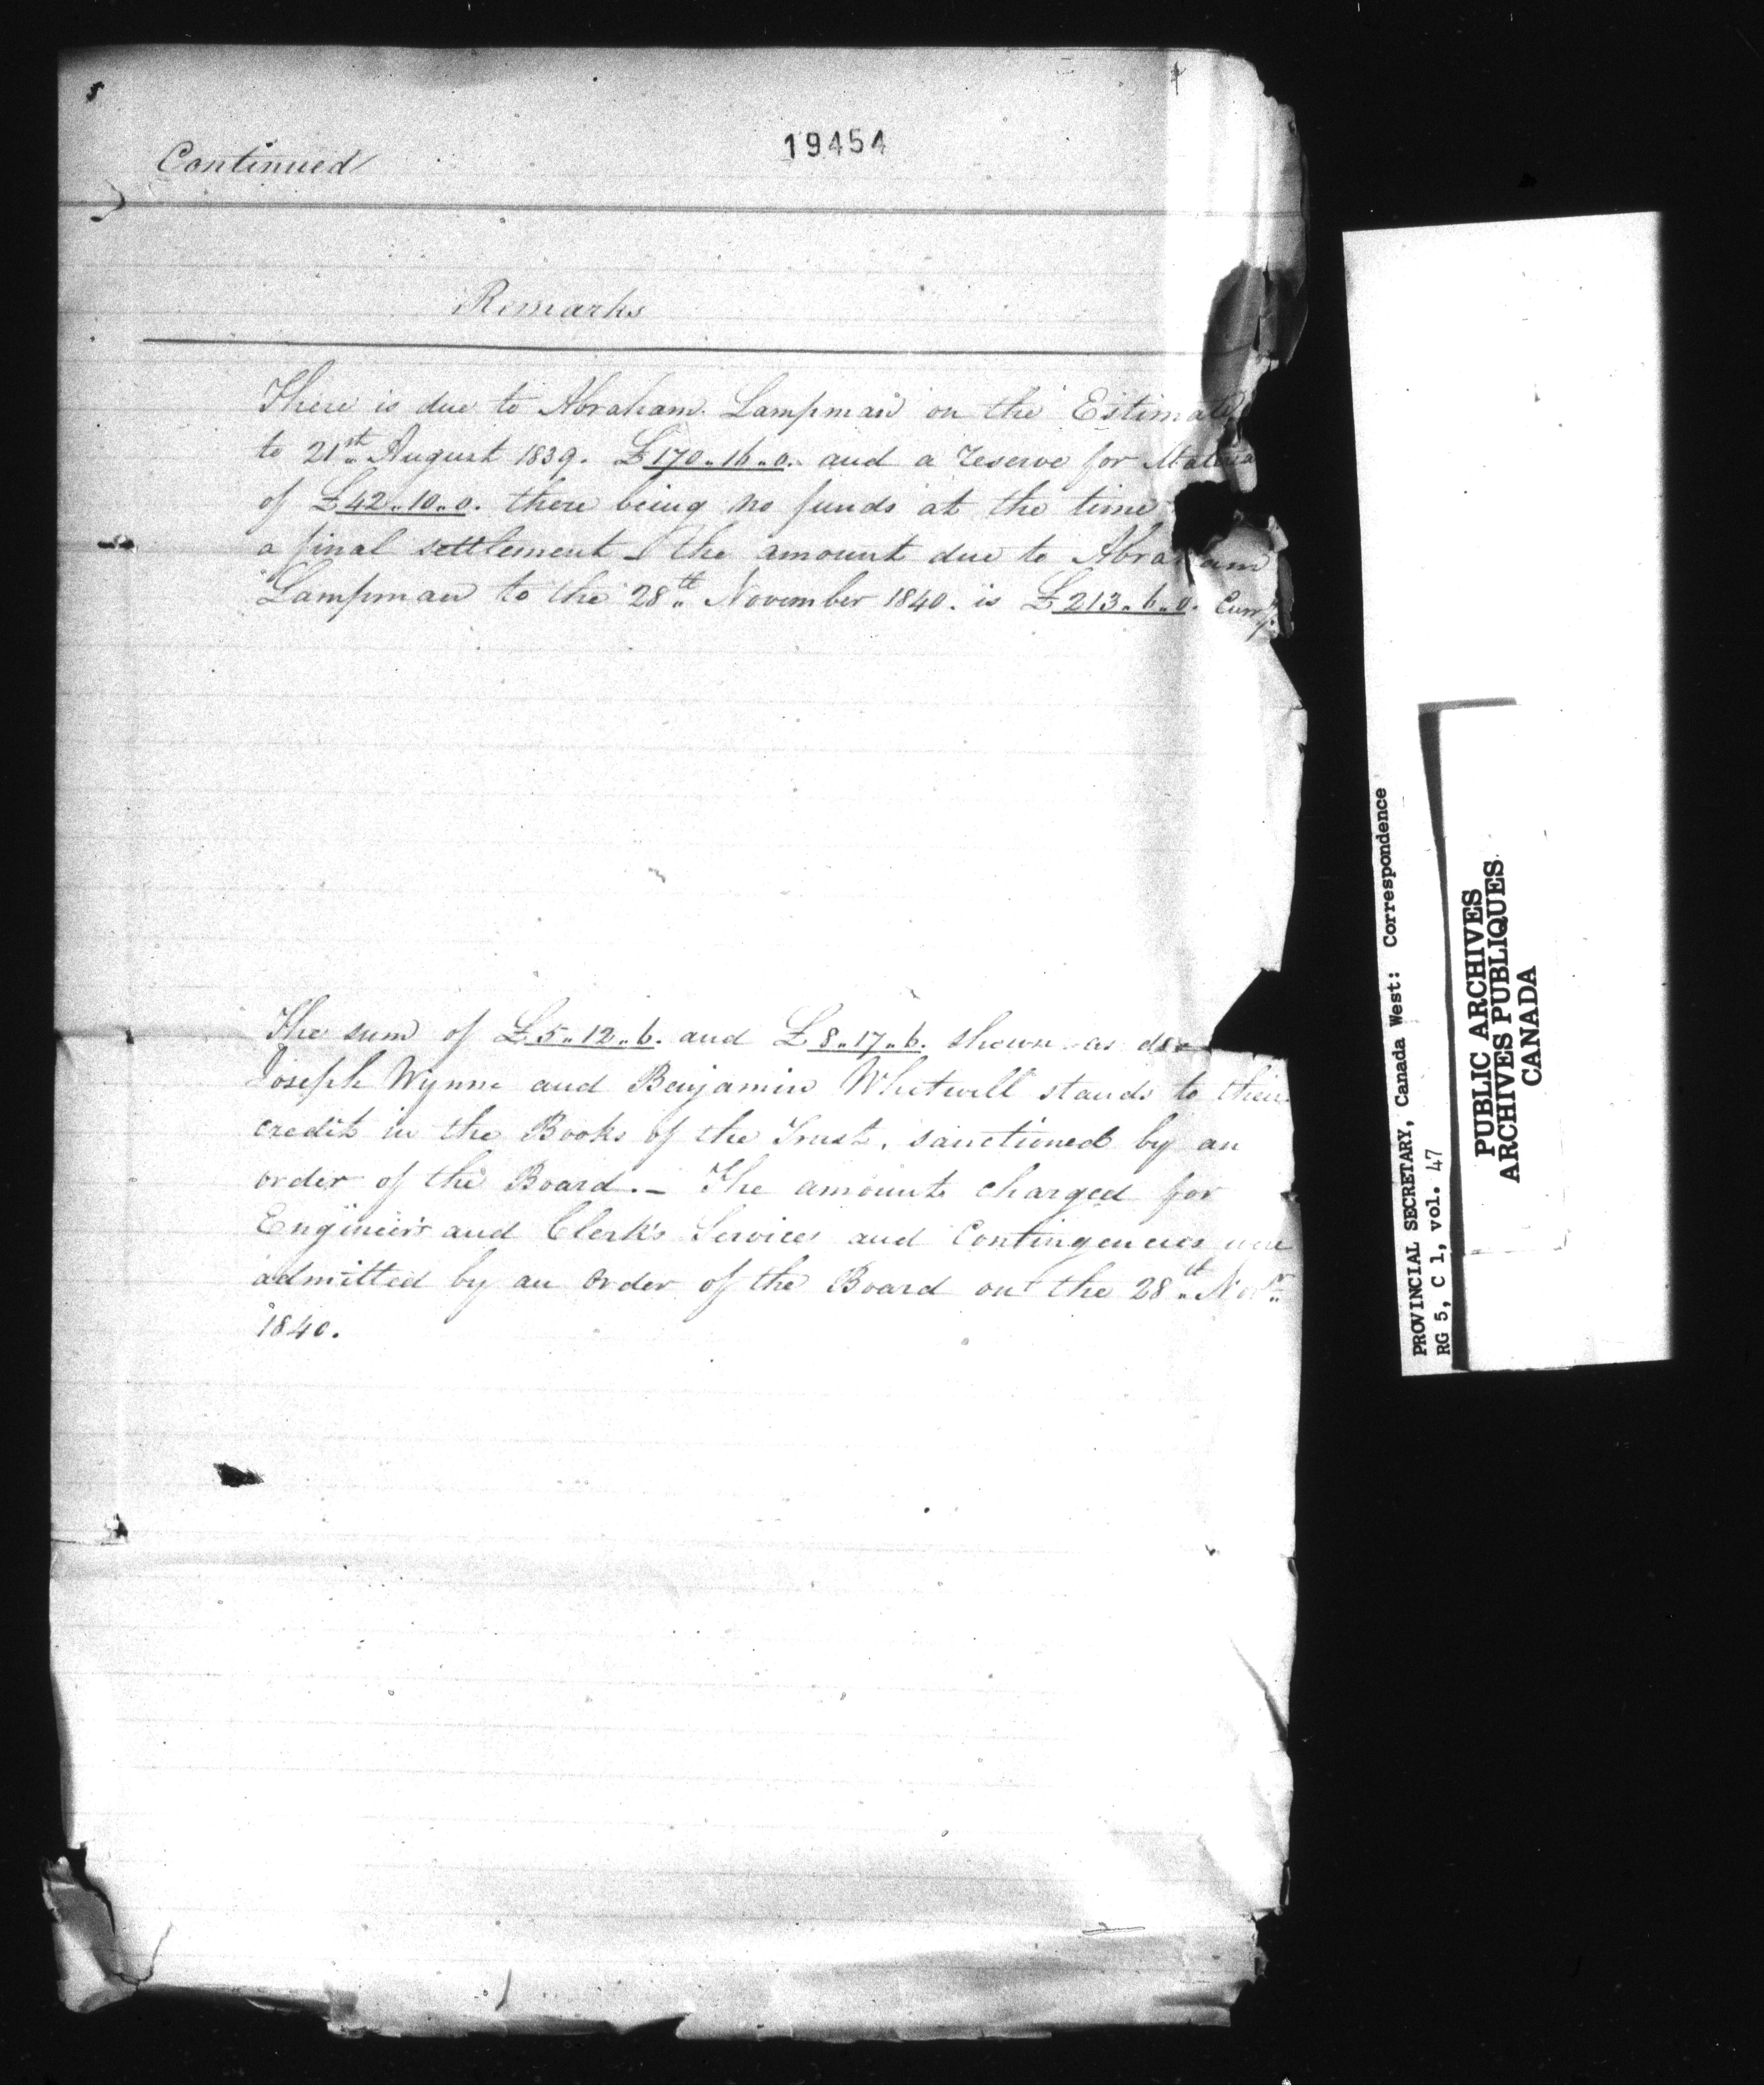 19454
Continued
Remarks
There is due to Abraham Lampman on the Estimate
to 21st August 1839. £170"16"0. and a reserve for Materia
of £42"10"0. there being no funds at the time
a final settlement – the amount due to Abraham
Lampman to the 28th November 1840. is £213"6"0. Curry.
The sum of £5"12"6. and £8"17"6. shown as due
Joseph Wynne and Benjamin Whitwell stands to their
credit in the Books of the Trust, sanctioned by an
order of the Board. – The amounts charged for
Engineer's and Clerk's Services and Contingencies were
admitted by an order of the Board on the 28th Novr
1840.
PROVINCIAL SECRETARY, Canada West: Correspondence
RG 5, C 1, vol. 47
PUBLIC ARCHIVES
ARCHIVES PUBLIQUES
CANADA